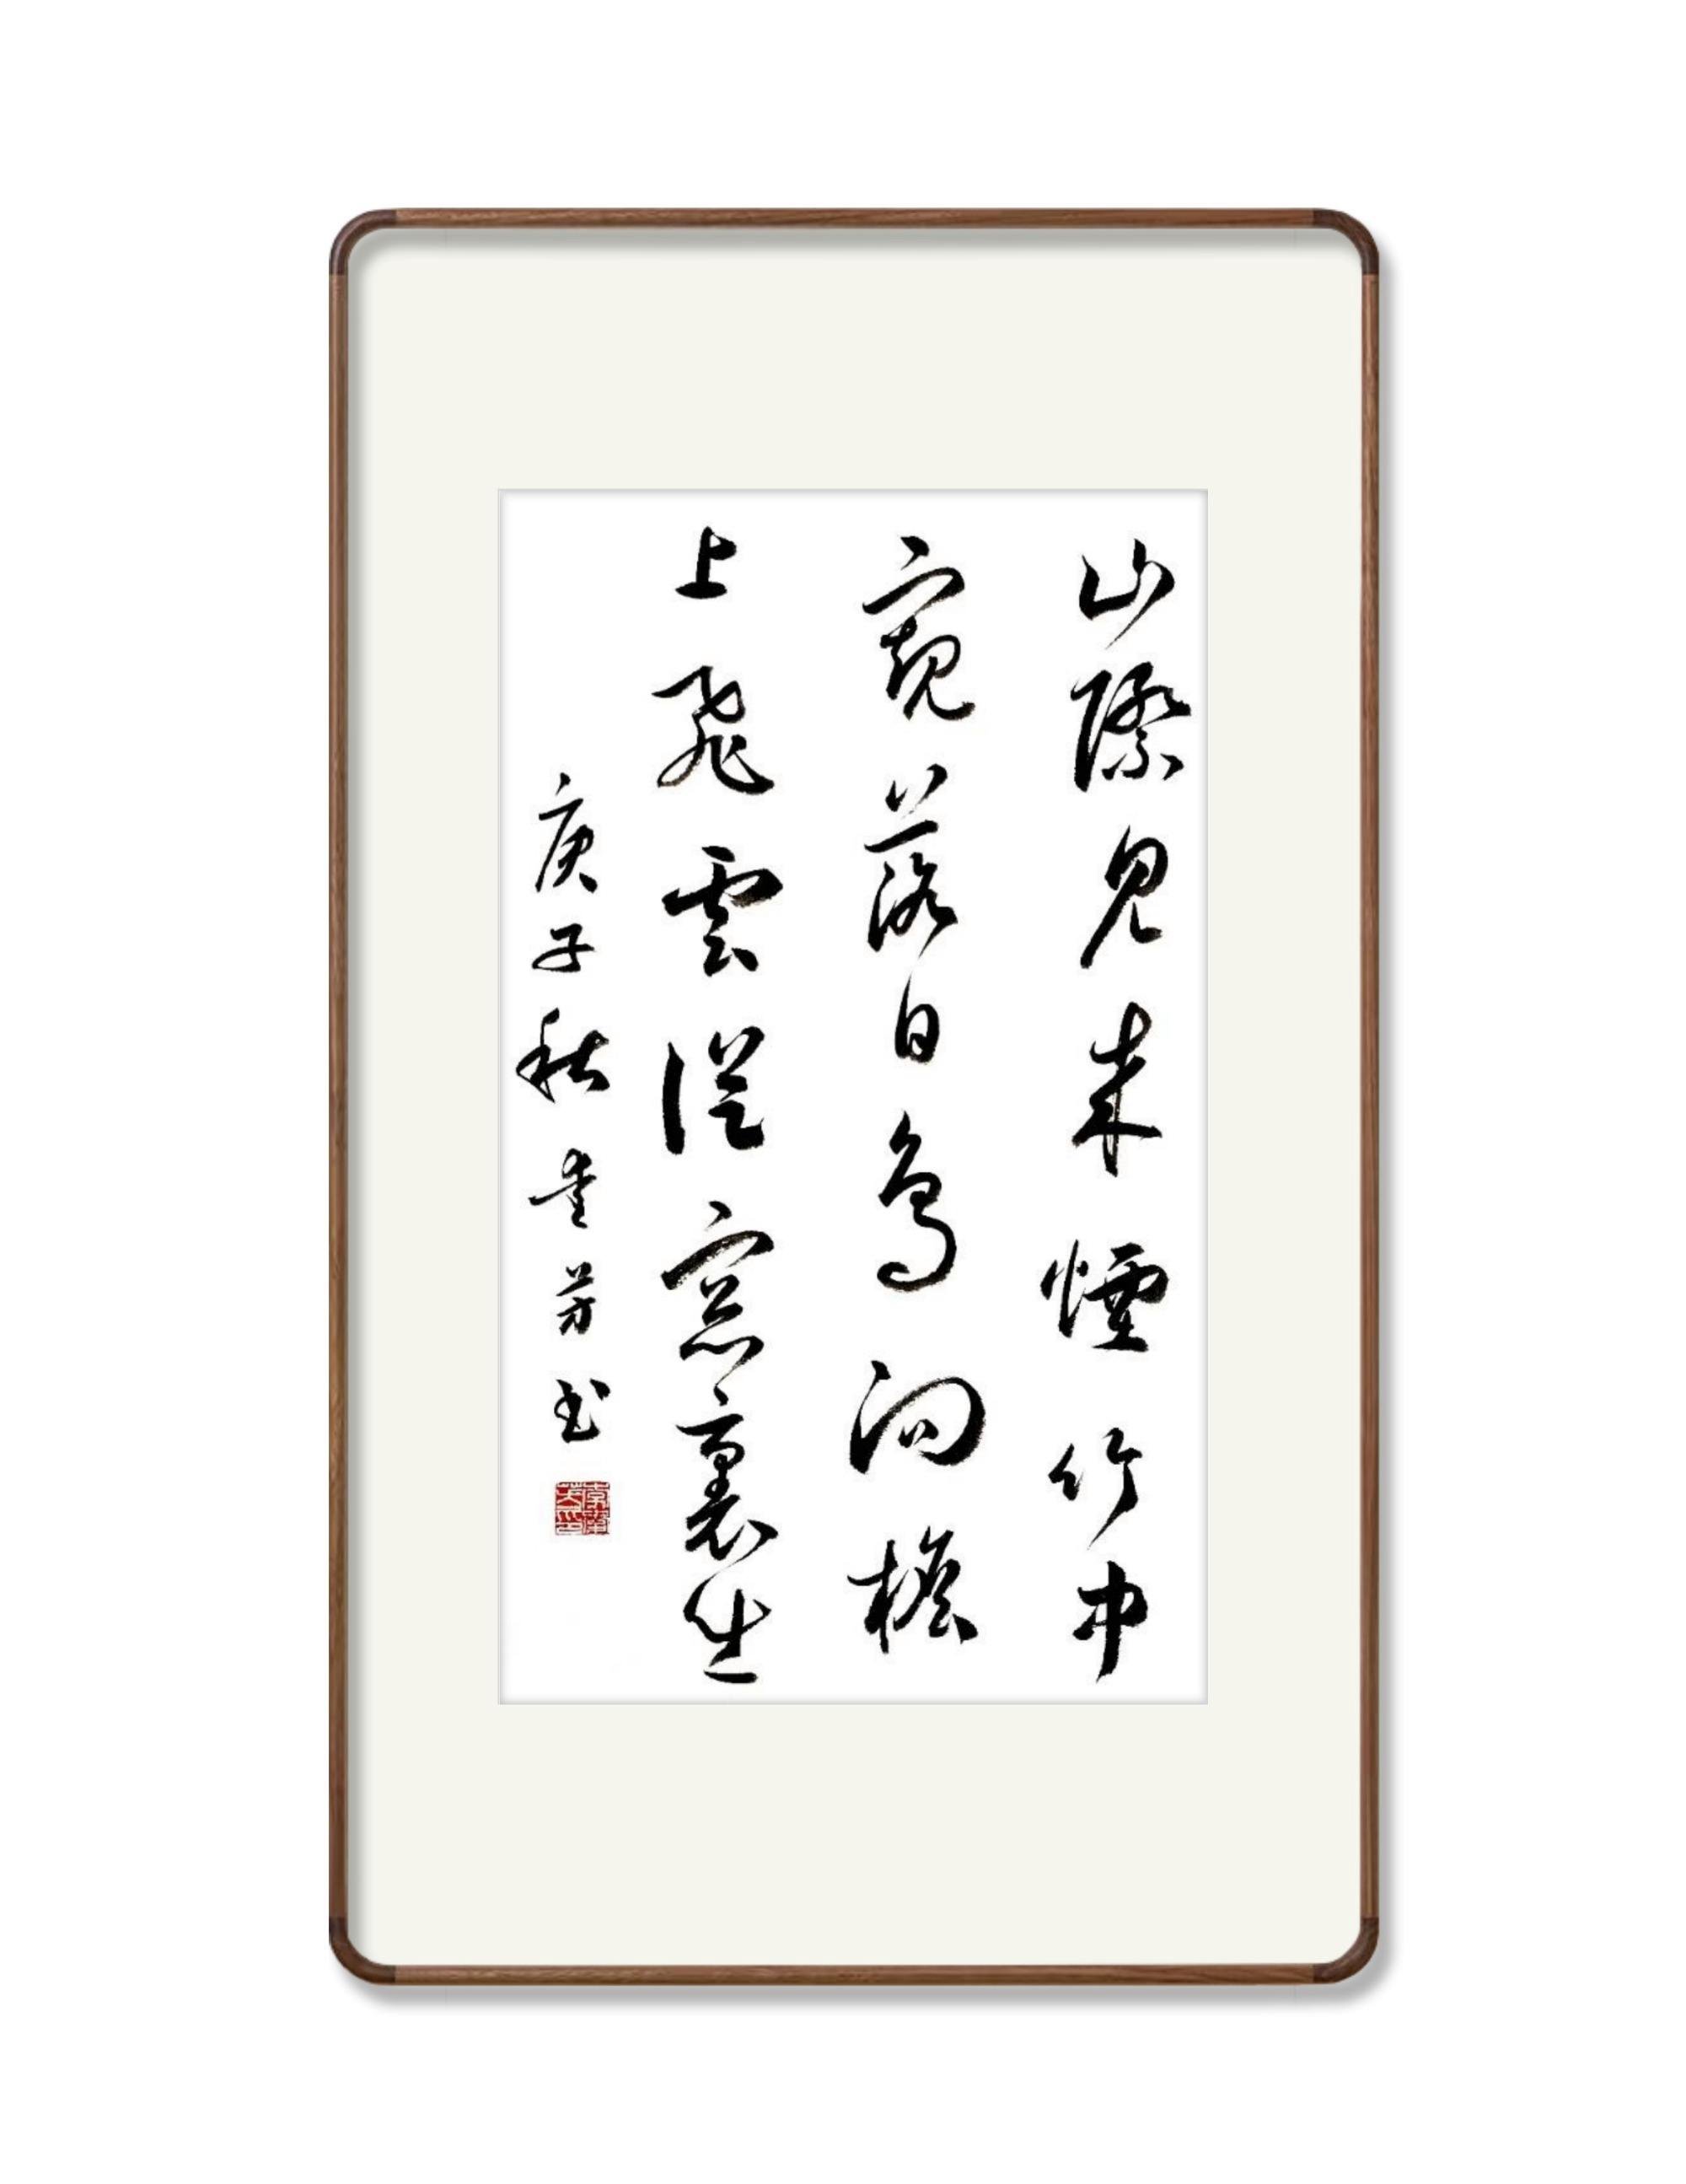 山際見來煙竹中
窺落日鳥向檐
上飛雲從窓裏生
庚子秋芳书